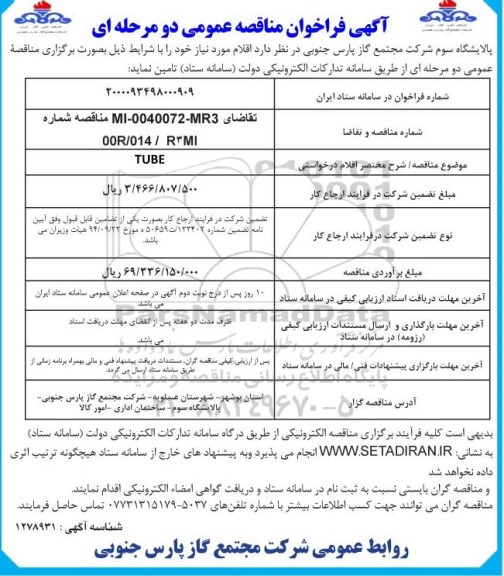 آگهی فراخوان مناقصه عمومی دو مرحله ای
پالایشگاه سوم شرکت مجتمع گاز پارس جنوبی در نظر دارد اقلام مورد نیاز خود را با شرایط ذیل بصورت برگزاری مناقصه
عمومی دو مرحله ای از طریق سامانه تدارکات الکترونیکی دولت (سامانه ستاد) تامین نماید:
شماره فراخوان در سامانه ستاد ایران
۲۰۰۰۰۹۳۴۹۸۰۰۰۹۰۹
شماره مناقصه و تقاضا
تقاضای MI-0040072-MR3 مناقصه شماره
00R/014 / R۳MI
موضوع مناقصه/ شرح مختصر اقلام درخواستی
TUBE
مبلغ تضمین شرکت در فرایند ارجاع کار
۳/۴۶۶/۸۰۷/۵۰۰ ریال
نوع تضمین شرکت درفرایند ارجاع کار
تضمین شرکت در فرایند ارجاع کار بصورت یکی از تضامین قابل قبول وفق آیین
نامه تضمین شماره ۱۲۳۴۰۲/ت۵۰۶۵۹ ه مورخ ۹۴/۰۹/۲۲ هیات وزیران می
باشد.
مبلغ برآوردی مناقصه
۶۹/۳۳۶/۱۵۰/۰۰۰ ریال
آخرین مهلت دریافت اسناد ارزیابی کیفی در سامانه ستاد
۱۰ روز پس از درج نوبت دوم آگهی در صفحه اعلان عمومی سامانه ستاد ایران
می باشد.
آخرین مهلت بارگذاری و ارسال مستندات ارزیابی کیفی
(رزومه) در سامانه ستاد
ظرف مدت دو هفته پس از انقضای مهلت دریافت اسناد
می باشد.
آخرین مهلت بارگزاری پیشنهادات فنی/ مالی در سامانه ستاد
پس از ارزیابی کیفی مناقصه گران، مستندات دریافت پیشنهاد فنی و مالی بهمراه برنامه زمانی از
طریق سامانه ستاد ارسال می گردد.
آدرس مناقصه گزار
استان بوشهر- شهرستان عسلویه- شرکت مجتمع گاز پارس جنوبی-
پالایشگاه سوم- ساختمان اداری -امور کالا
ParsNamadData
پایگاه اطلاع رسانی مناقصه و مزایده
۰۲۱-۸۸۳۴۹۶۷۰-۵
بدیهی است کلیه فرآیند برگزاری مناقصه الکترونیکی از طریق درگاه سامانه تدارکات الکترونیکی دولت (سامانه ستاد)
به نشانی: WWW.SETADIRAN.IR انجام می پذیرد وبه پیشنهاد های خارج از سامانه ستاد هیچگونه ترتیب اثری
داده نخواهد شد
و مناقصه گران بایستی نسبت به ثبت نام در سامانه ستاد و دریافت گواهی امضاء الکترونیکی اقدام نمایند.
مناقصه گران می توانند جهت کسب اطلاعات بیشتر با شماره تلفن‌های ۵۰۳۷-۰۷۷۳۱۳۱۵۱۷۹ تماس حاصل فرمایند.
شناسه آگهی : ۱۲۷۸۹۳۱
روابط عمومی شرکت مجتمع گاز پارس جنوبی